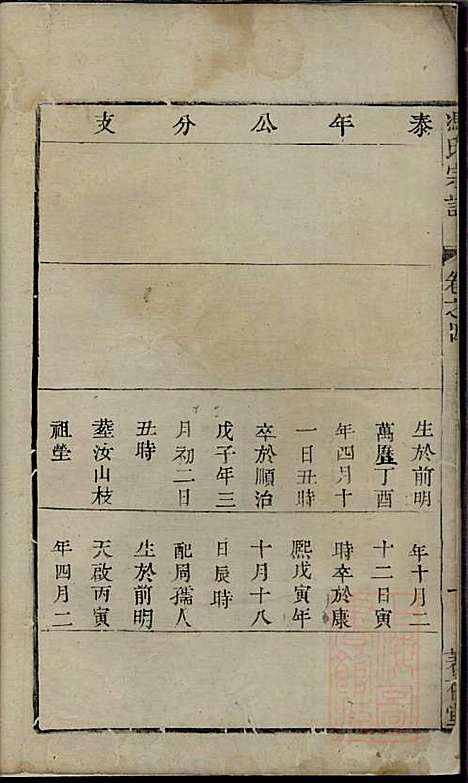 氏宗譜
卷之四
一
泰年公分支
生於前明
萬曆丁酉
年四月十
一日丑時
卒於順治
戊子年三
月初二日
丑時
葬汝山枝
祖塋
年十月二
十二日寅
時卒於康
熙戊寅年
十月十八
日辰時
配周孺人
生於前明
天啟丙寅
年四月二